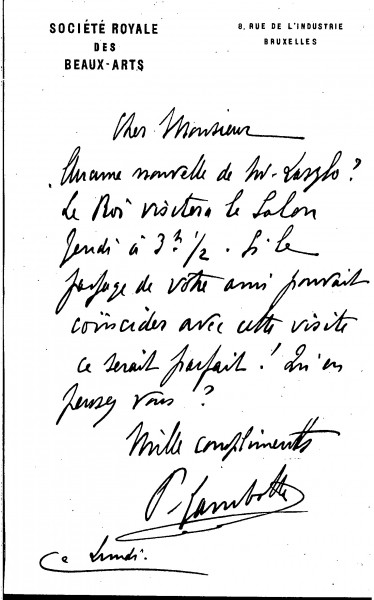 SOCIÉTÉ ROYALE
DES
BEAUX-ARTS
8, RUE DE L'INDUSTRIE
BRUXELLES
Cher Monsieur
Aucune nouvelle de Mr Laszlo?
Le Roi visitera le Salon
Jeudi à 3h 1/2. Si le
passage de votre ami pouvait
coïncider avec cette visite
ce serait parfait! Qu'en
pensez vous?
Mille compliments
P. Lambotte
Ce Lundi.